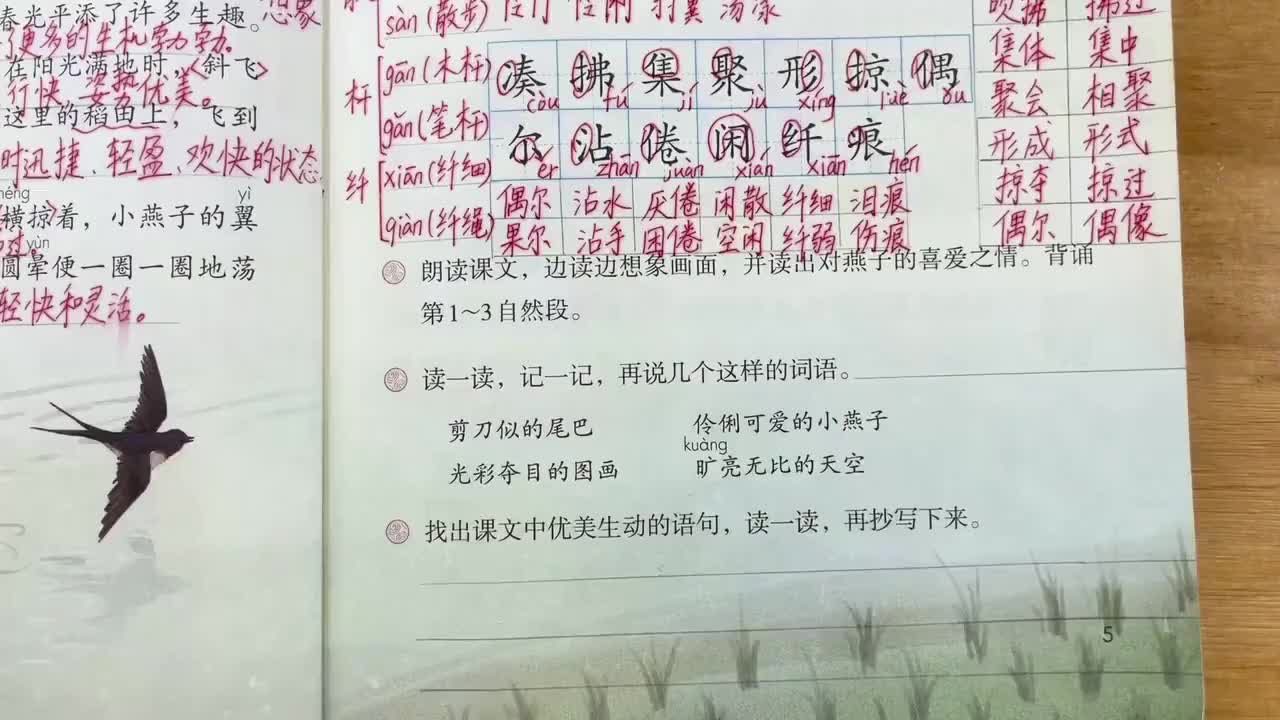 春光平添了许多生趣。
想象
更多的生机勃勃。
在阳光满地时，斜飞
行快、姿势优美。
这里的稻田上，飞到
时迅捷、轻盈、欢快的状态
yì
横掠着，小燕子的翼
过 yùn
圆晕便一圈一圈地荡
轻快和灵活。
sàn(散步)
杆 gān(木杆)
gǎn(笔杆)
纤 xiān(纤细)
qiàn(纤绳)
凑 拂 集 聚 形 掠 偶
còu fú jí jù xíng lüè ǒu
尔 沾 倦 闲 纤 痕
ěr zhān juàn xián xiān hén
偶尔 沾水 厌倦 闲散 纤细 泪痕
果尔 沾手 困倦 空闲 纤弱 伤痕
吹拂 拂过
集体 集中
聚会 相聚
形成 形式
掠夺 掠过
偶尔 偶像
朗读课文，边读边想象画面，并读出对燕子的喜爱之情。背诵
第1～3自然段。
读一读，记一记，再说几个这样的词语。
剪刀似的尾巴 伶俐可爱的小燕子
kuàng
光彩夺目的图画 旷亮无比的天空
找出课文中优美生动的语句，读一读，再抄写下来。
5